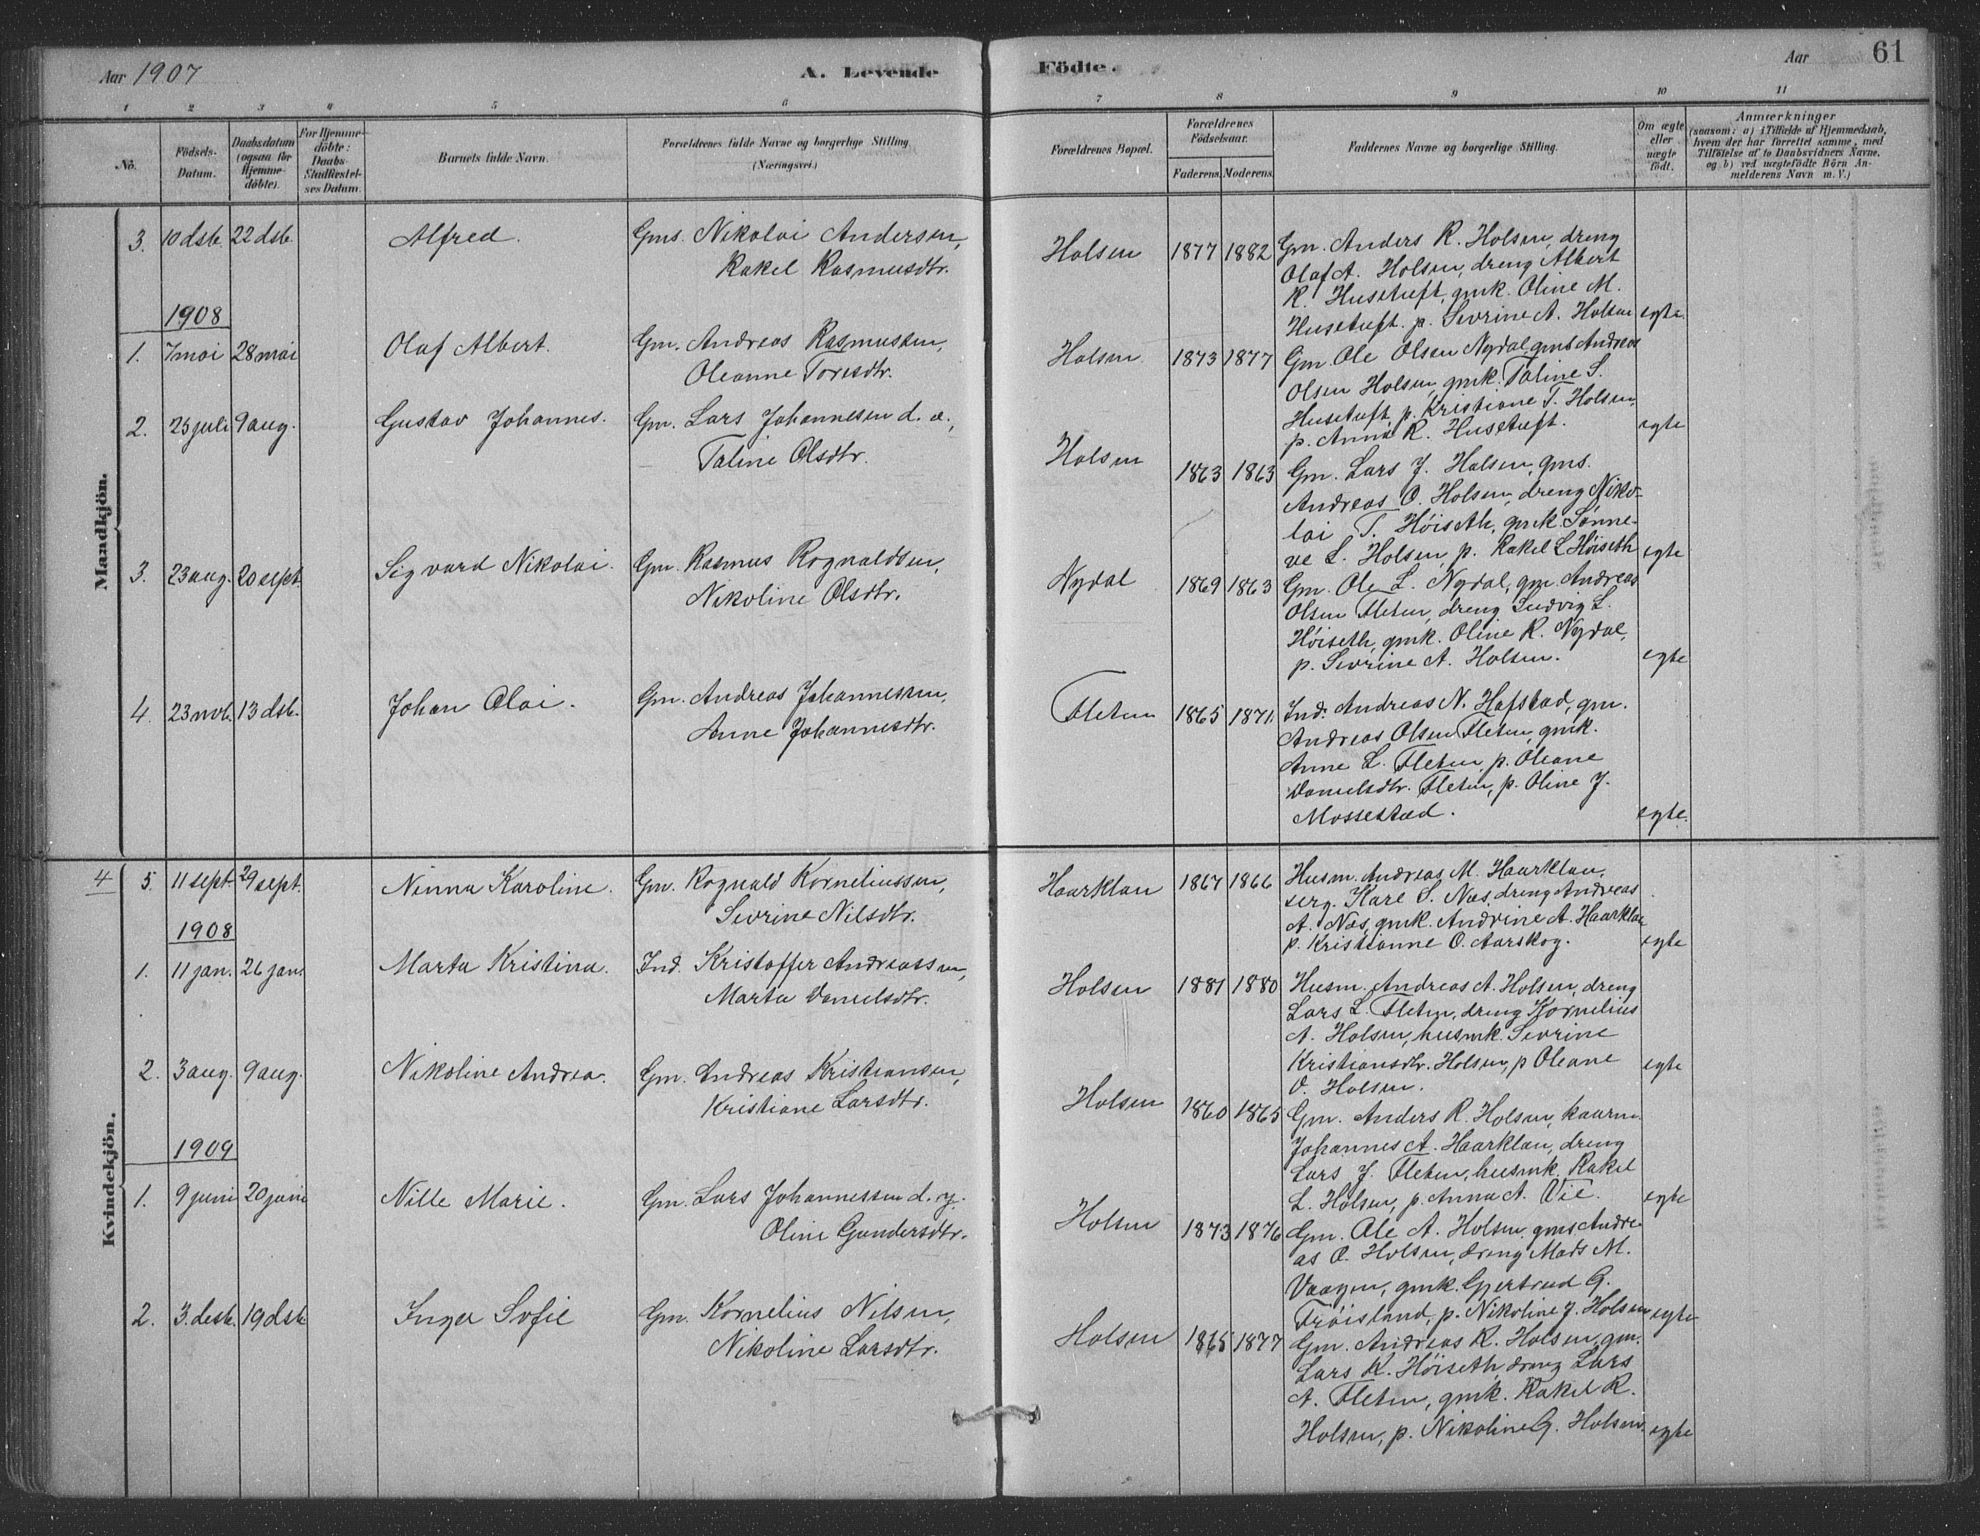 Aar 1907
A. Levende
Födte.
Aar
61
1 2 3 4 5 6 7 8 9 10 11
No.
Födsels-
Datum.
Daabsdatum
(ogsaa for
Hjemme-
döbte).
For Hjemme-
döbte:
Daabs-
Stadfæstel-
ses Datum.
Barnets fulde Navn.
Forældrenes fulde Navne og borgerlige Stilling
(Næringsvei.)
Forældrenes Bopæl.
Forældrenes
Födselsaar.
Faderens. Moderens.
Faddernes Navne og borgerlige Stilling.
Om ægte
eller
uægte
födt.
Anmærkninger
(saasom: a) i Tilfælde af Hjemmedaab,
hvem der har forrettet samme, med
Tilföielse af to Daabsvidners Navne,
og b) ved uægtefödte Börn An-
melderens Navn m. V.)
Mandkjön.
3. 10 dsb. 22 dsb. Alfred. Gms. Nikolai Andersen,
Rakel Rasmusdtr.
Holsen 1877 1882 Gm. Anders R. Holsen, dreng
Olaf A. Holsen, dreng Albert
R. Husetuft, gmk. Oline M.
Husetuft, p. Sevrine A. Holsen egte.
1908
1. 7 mai 28 mai Olaf Albert. Gm. Andreas Rasmussen,
Oleanne Toresdtr.
Holsen 1873 1877 Gm. Ole Olsen Nydal, gms Andreas
Olsen Holsen, gmk. Taline S.
Husetuft, p. Kristiane T. Holsen,
p. Anna R. Husetuft. egte
2. 25 juli 9 aug. Gustav Johannes. Gm. Lars Johannesen d. æ.,
Taline Olsdtr.
Holsen 1863 1863 Gm. Lars J. Holsen, gms.
Andreas O. Holsen, dreng Niko-
lai T. Høiseth, gmk. Sønne-
ve L. Holsen, p. Rakel L Høiseth egte
3. 23 aug. 20 sept. Sigvard Nikolai. Gm. Rasmus Rognaldsen,
Nikoline Olsdtr.
Nydal 1869 1863 Gm. Ole L. Nydal, gm. Andreas
Olsen Fleten, dreng Ludvig L.
Høiseth, gmk. Oline R. Nydal,
p. Sevrine A. Holsen. egte
4. 23 novb. 13 dsb. Johan Olai. Gm. Andreas Johannessen,
Anne Johannesdtr.
Fleten 1865 1871. Ind. Andreas N. Hafstad, gm.
Andreas Olsen Fleten, gmk.
Anne L. Fleten, p. Oleane
Danielsdtr. Fleten, p. Oline J.
Mossestad. egte.
Kvindekjön.
4 5. 11 sept. 29 sept. Ninna Karoline. Gm. Rognald Korneliussen,
Sevrine Nilsdtr.
Haarklau 1867 1866 Husm. Andreas M. Haarklau,
serg. Kare S. Næs, dreng Andreas
A. Næs, gmk. Andrine A. Haarklau
p. Kristianne O. Aarskog. egte
1908
1. 11 jan. 26 jan. Marta Kristina. Ind. Kristoffer Andreassen,
Marta Danielsdtr.
Holsen 1881 1880 Husm. Andreas A. Holsen, dreng
Lars L. Fleten, dreng Kornelius
A. Holsen, husmk. Sevrine
Kristiansdtr. Holsen, p Oleane
O. Holsen. egte
2. 3 aug. 9 aug. Nikoline Andrea. Gm. Andreas Kristiansen,
Kristiane Larsdtr.
Holsen 1860 1865 Gm. Anders R. Holsen, kaarm.
Johannes A. Haarklau, dreng
Lars J. Fleten, husmk. Rakel
L. Holsen, p. Anna A. Vie. egte
1909
1. 9 juni 20 juni Nille Marie. Gm. Lars Johannessen d. y.
Oline Gundersdtr.
Holsen 1873 1876 Gm. Ole A. Holsen, gms Andre-
as O. Holsen, dreng Mads M.
Vaagen, gmk. Gjertrud G.
Frøisland, p. Nikoline J. Holsen egte
2. 3. desb. 19 dsb Inger Sofie Gm. Kornelius Nilsen,
Nikoline Larsdtr.
Holsen 1865 1877 Gm. Andreas R. Holsen, gm.
Lars K. Høiseth, dreng Lars
A. Fleten, gmk. Rakel R.
Holsen, p. Nikoline G. Holsen. egte